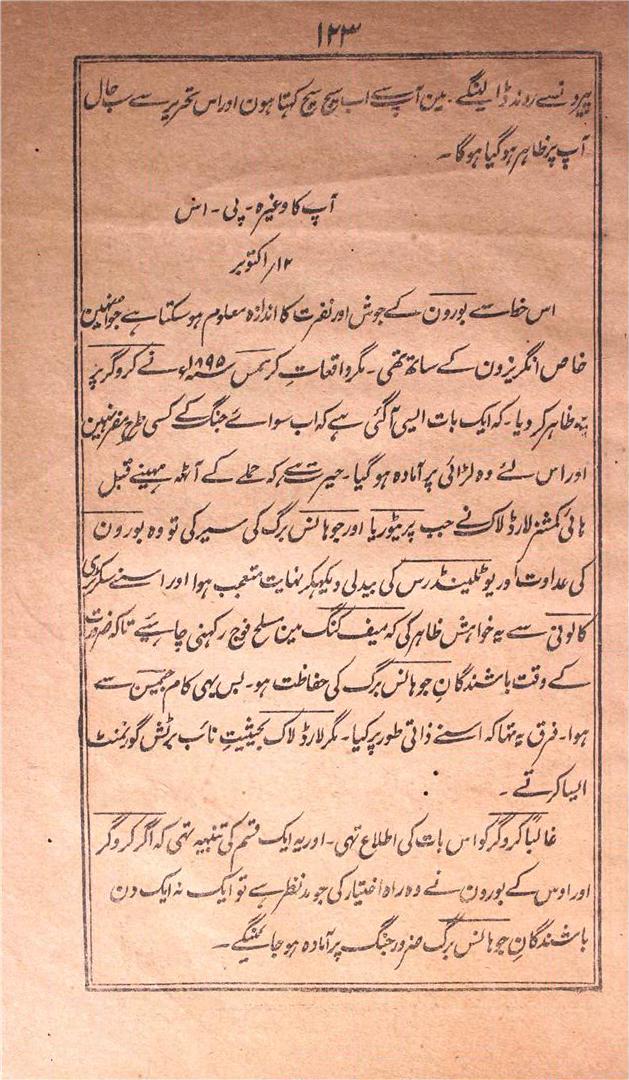 ۱۲۳
پیرونسے روند ڈالینگے۔ مین آپ سے اب سچ سچ کہتا ہون اور اس تحریر سے حال
آپ پر ظاہر ہو گیا ہوگا۔
آپ کا وغیرہ۔ پی۔ اس
۱۲/ اکتوبر
اس خط سے بورون کے جوش اور نفرت کا اندازہ معلوم ہو سکتا ہے جو انہین
خاص انگریزون کے ساتھ تھی۔ مگر واقعاتِ کرسمس سنہ ۱۸۹۵ء نے کروگر پر
یہ ظاہر کر دیا۔ کہ ایک بات ایسی آ گئی ہے کہ اب سوائے جنگ کے کسی طرح مفر نہین
اور اس لئے وہ لڑائی پر آمادہ ہو گیا۔ حیرت ہے کہ حملے کے آٹھہ مہینے قبل
ہائی کمشنر لارڈ لاک نے جب پریٹوریا اور جوہانس برگ کی سیر کی تو وہ بورون
کی عداوت اور یوٹلینڈرس کی بیدلی دیکھکر نہایت متعجب ہوا اور اسنے سکرٹری
کالونی سے یہ خواہش ظاہر کی کہ میف کنگ مین مسلح فوج رکہنی چاہئیے تاکہ ضرورت
کے وقت باشندگانِ جوہانس برگ کی حفاظت ہو۔ بس یہی کام جیمسن سے
ہوا۔ فرق یہ تہا کہ اسنے ذاتی طور پر کیا۔ مگر لارڈ لاک بحیثیتِ نائب برٹش گورنمنٹ
ایسا کرتے۔
غالباً کروگر کو اس بات کی اطلاع تہی۔ اور یہ ایک قسم کی تنبیہ تہی کہ اگر کروگر
اور اوس کے بورون نے وہ راہ اختیار کی جو مد نظر ہے تو ایک نہ ایک دن
باشندگانِ جوہانس برگ ضرور جنگ پر آمادہ ہو جائینگے۔